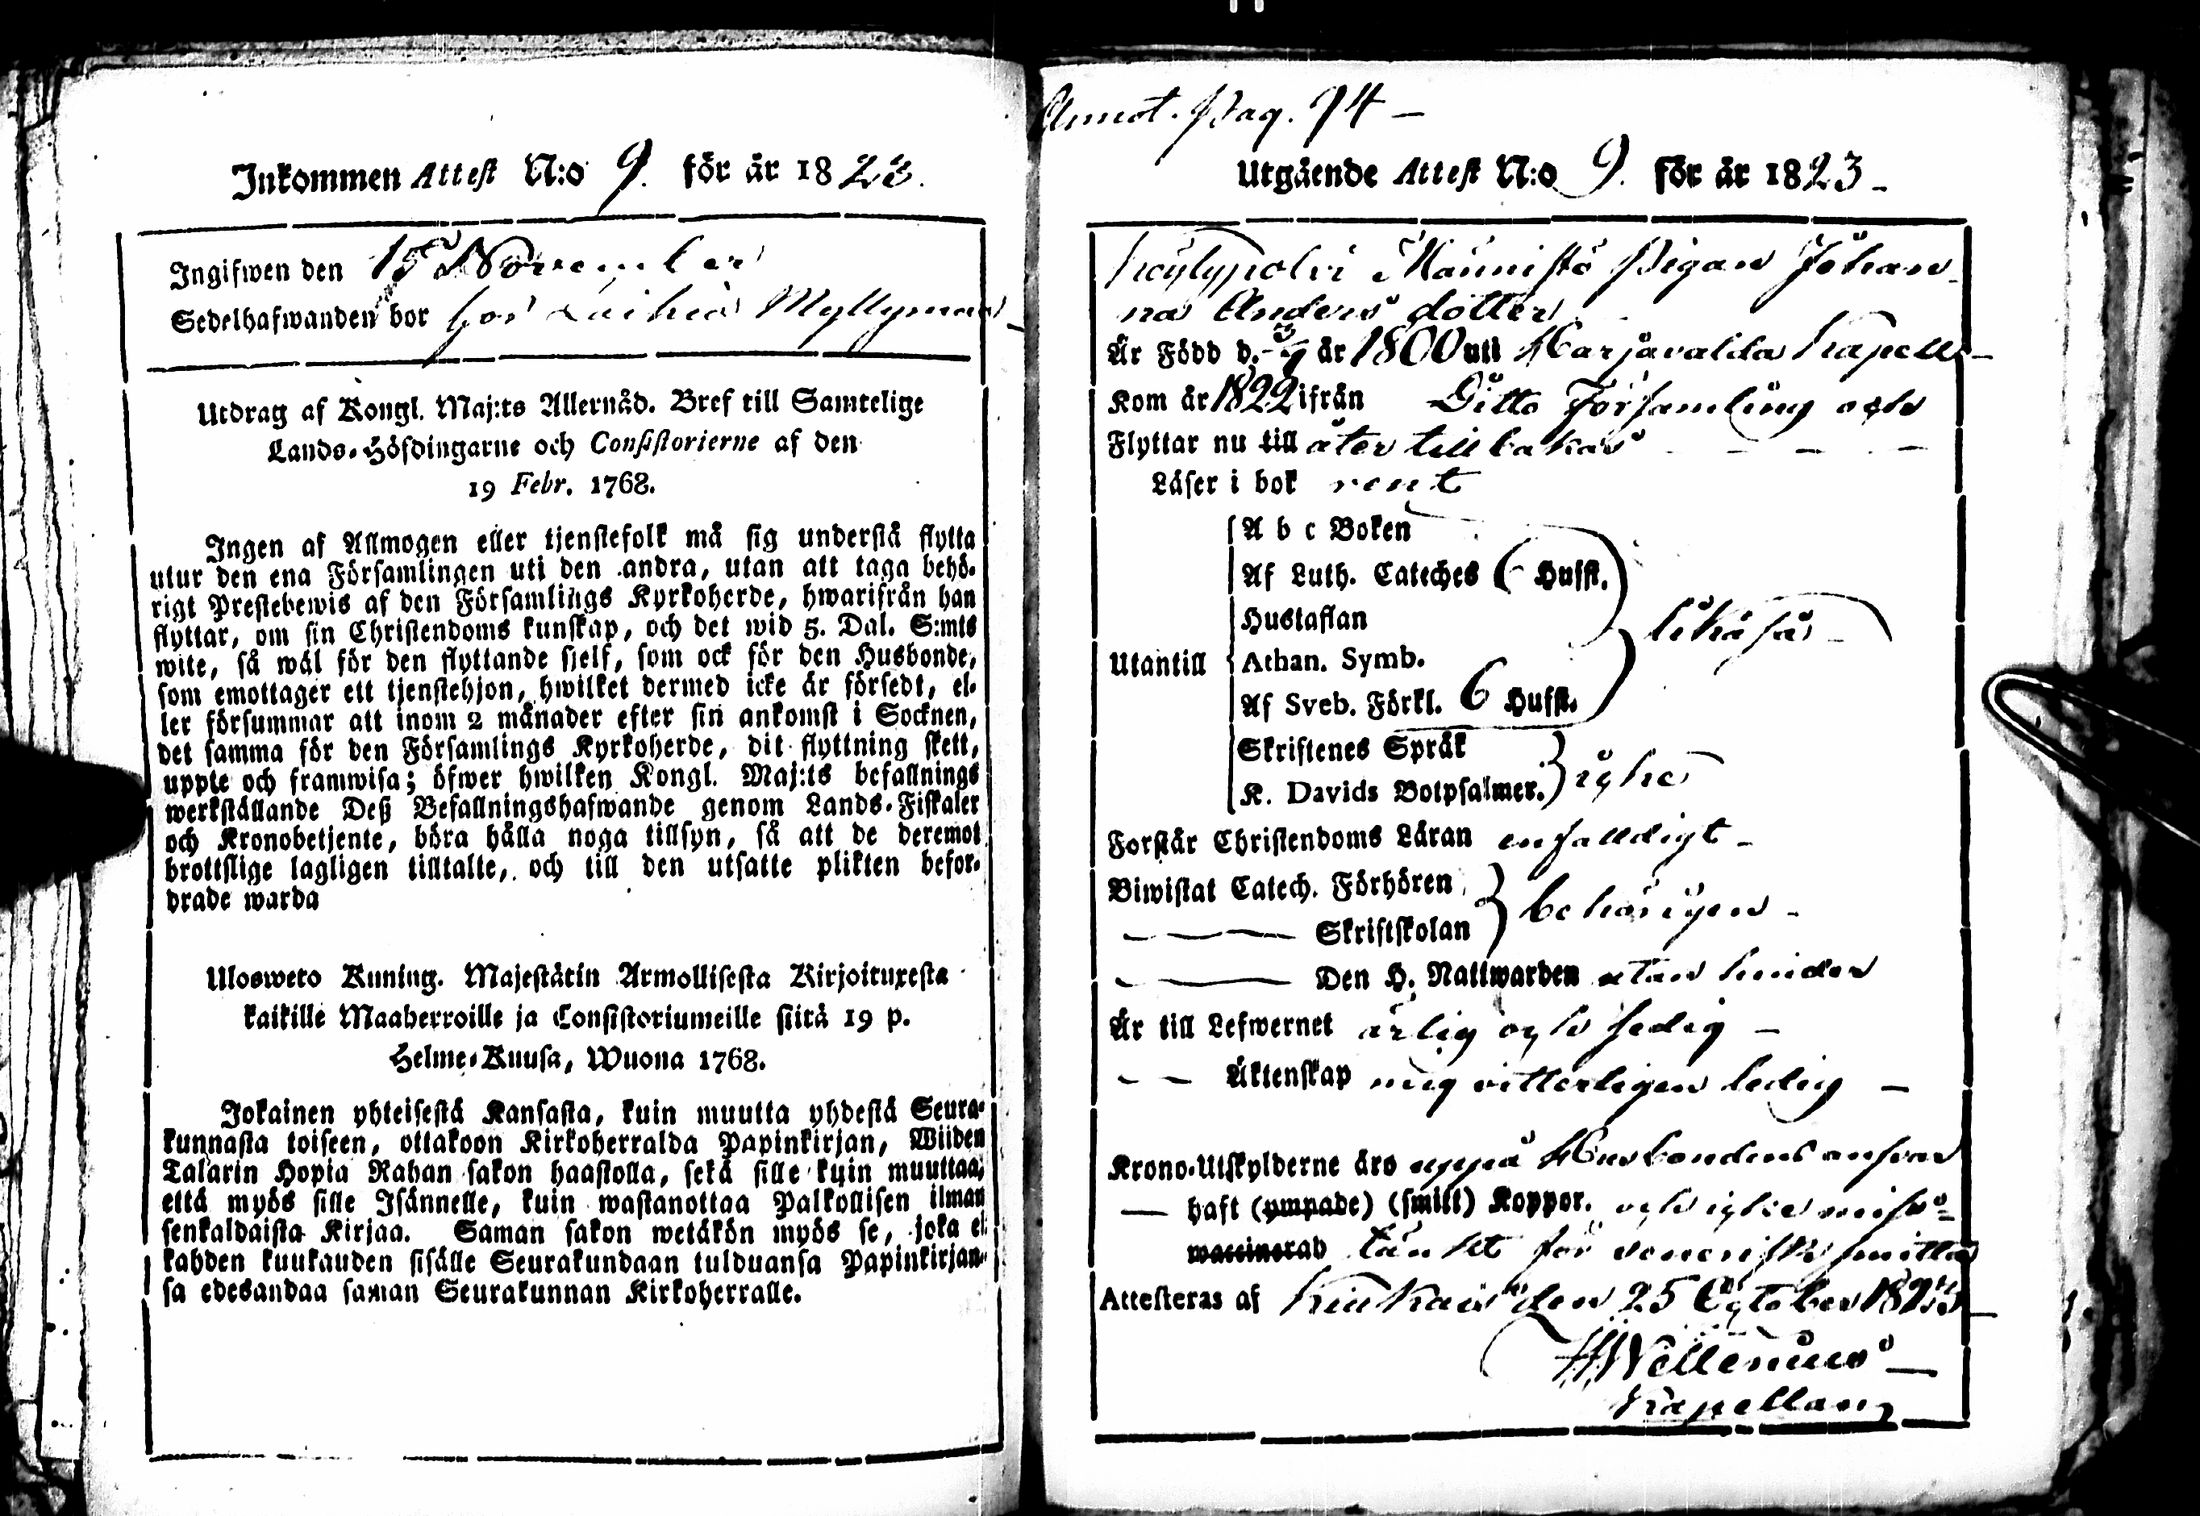 Inkommen Attest N:o 9. för år 1823.
Ingifwen den 15 November
Sedelhafwanden bor hos Laihia Myllymaa
Utdrag af Kongl. Maj:ts Allernåd. Bref till Samtelige
Lands-Höfdingarne och Consistorierne af den
19 Febr. 1768.
Ingen af Allmogen eller tjenstefolk må sig understå flytta
utur den ena Församlingen uti den andra, utan att taga behö-
rigt Prestebewis af den Församlings Kyrkoherde, hwarifrån han
flyttar, om sin Christendoms kunskap, och det wid 5. Dal. S:mts
wite, så wäl för den flyttande sjelf, som ock för den Husbonde,
som emottager ett tjenstehjon, hwilket dermed icke är försedt, el-
ler försummar att inom 2 månader efter sin ankomst i Socknen,
det samma för den Församlings Kyrkoherde, dit flyttning skett,
uppte och framwisa; öfwer hwilken Kongl. Maj:ts befallnings
werkställande Deß Befallningshafwande genom Lands-Fiskaler
och Kronobetjente, böra hålla noga tillsyn, så att de deremot
brottslige lagligen tilltalte, och till den utsatte plikten befor-
drade warda
Ulosweto Kuning. Majestätin Armollisesta Kirjoituxesta
kaikille Maaherroille ja Consistoriumeille siitä 19 p.
Helme-Kuusa, Wuona 1768.
Jokainen yhteisestä Kansasta, kuin muutta yhdestä Seura-
kunnasta toiseen, ottakoon Kirkoherralda Papinkirjan, Wiiden
Talarin Hopia Rahan sakon haastolla, sekä sille kuin muuttaa,
että myös sille Isännelle, kuin wastanottaa Palkollisen ilman
senkaldaista Kirjaa. Saman sakon wetäkön myös se, joka ei
kahden kuukauden sisälle Seurakundaan tulduansa Papinkirjan-
sa edesandaa saman Seurakunnan Kirkoherralle.
Annot. Pag. 94 -
Utgående Attest N:o 9. för år 1823 -
Köylypolvi Männistö Pigan Johan-
na Anders dotter
Är Född d. 3/7 år 1800 uti Harjavalda Kapell -
Kom år 1822 ifrån Ditto Församling och
Flyttar nu till åter tillbakas - - - -
Läser i bok rent
A b c Boken
Af Luth. Cateches ( - Hufst.
Hustaflan
Utantill Athan. Symb. likaså -
Af Sveb. Förkl. 6 Hufst.
Skriftenes Språk
K. Davids Botpsalmer. icke
Forstår Christendoms Läran enfalldigt -
Biwistat Catech. Förhören behörigen -
Skriftskolan
Den H. Nattwarden utan hinder
Är till Lefwernet ärlig och sedig -
- - Äktenskap mig vitterligen ledig -
Krono-Utskylderne äro uppå Husbondens ansvar
— haft (ympade) (smitt) Koppor. och icke miss-
waccinerad tänkt för venerisk smitta
Attesteras af Kiukais den 25 October 1823 -
HWellenius -
Kapellan